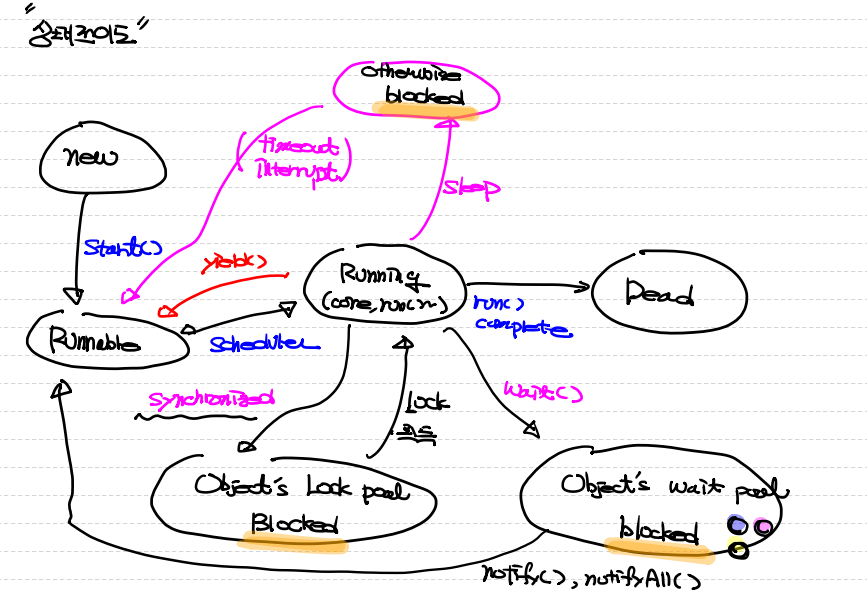 "상태전이도"
otherwise
blocked
new
(timeout
interrupt)
sleep
start()
yield()
Running
(core, run())
Dead
run()
complete
Runnable
scheduler
synchronized
Lock
획득
wait()
Object's Lock pool
Blocked
Object's wait pool
blocked
notify(), notifyAll()